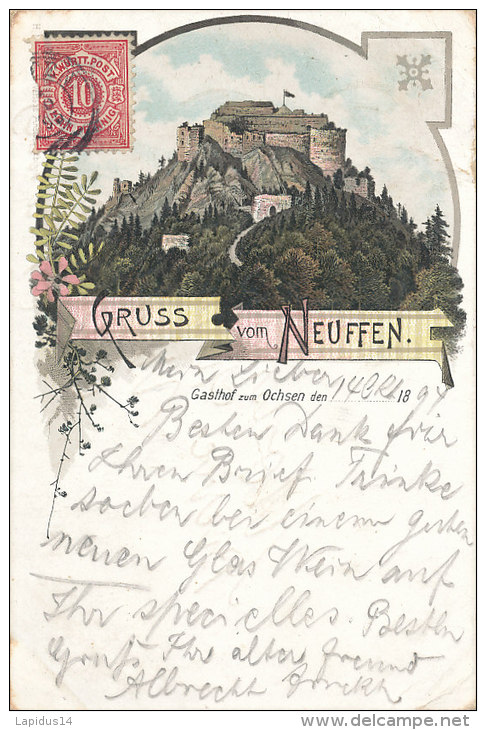 K. WÜRTT. POST
10
PFENNIG
GRUSS vom NEUFFEN.
Mein Lieber
Gasthof zum Ochsen den 14 Okt. 1894
Besten Dank für
Ihren Brief. Trinke
soeben bei einem guten
neuen Glas Wein auf
Ihr specielles. Besten
Gruß Ihr alter Freund
Albrecht
Lapidus14
delcampe.net